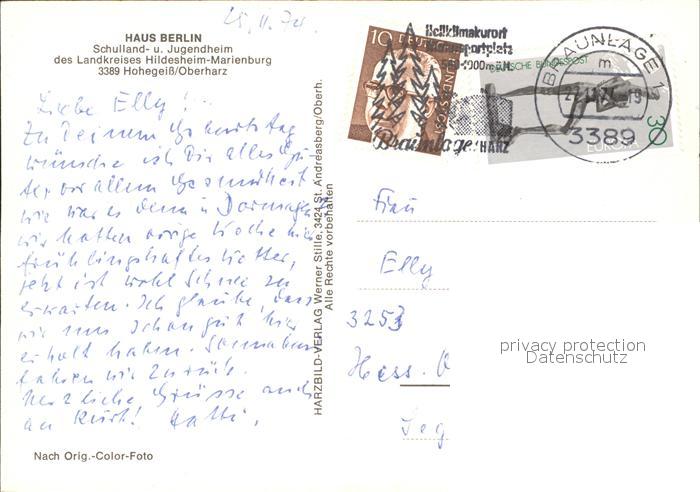 25.11.74.
HAUS BERLIN
Schulland- u. Jugendheim
des Landkreises Hildesheim-Marienburg
3389 Hohegeiß/Oberharz
Liebe Elly!
Zu Deinem Geburtstag
wünsche ich Dir alles Gu-
te, vor allem Gesundheit
wie war es denn in Dormagen
wir hatten vorige Woche hier
frühlingshaftes Wetter,
jetzt ist wohl Schnee zu
erwarten. Ich glaube, dass
wir uns schon gut hier
erholt haben. Sonnabend
fahren wir zurück.
Herzliche Grüsse auch
an Kurt!
Nach Orig.-Color-Foto
HARZBILD-VERLAG Werner Stille, 3424 St. Andreasberg/Oberh.
Alle Rechte vorbehalten
10
DEUTSCHE BUNDESPOST
Heilklimakurort
Wintersportplatz
-1000m ü.M.
Braunlage/HARZ
DEUTSCHE BUNDESPOST
30
EUROPA
BRAUNLAGE 1
m
3389
Frau
Elly
3253
Hess. O
Seg
privacy protection
Datenschutz